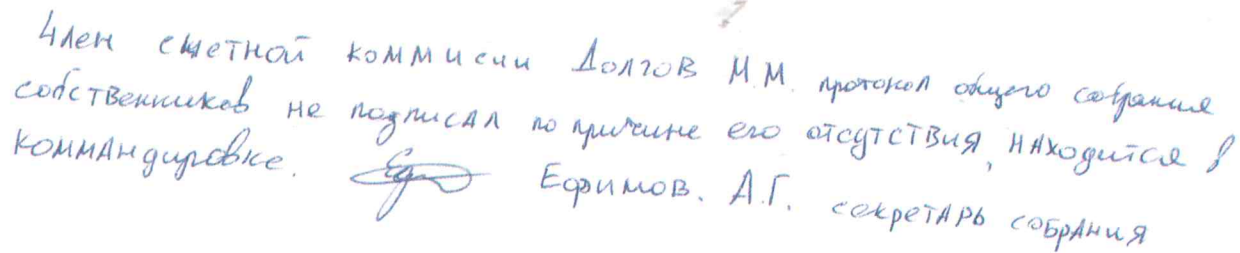 Член счетной коммисии Долгов М.М. протокол общего собрания
собственников не подписал по причине его отсутствия, находится в
коммандировке. Ефимов. А.Г. секретарь собрания